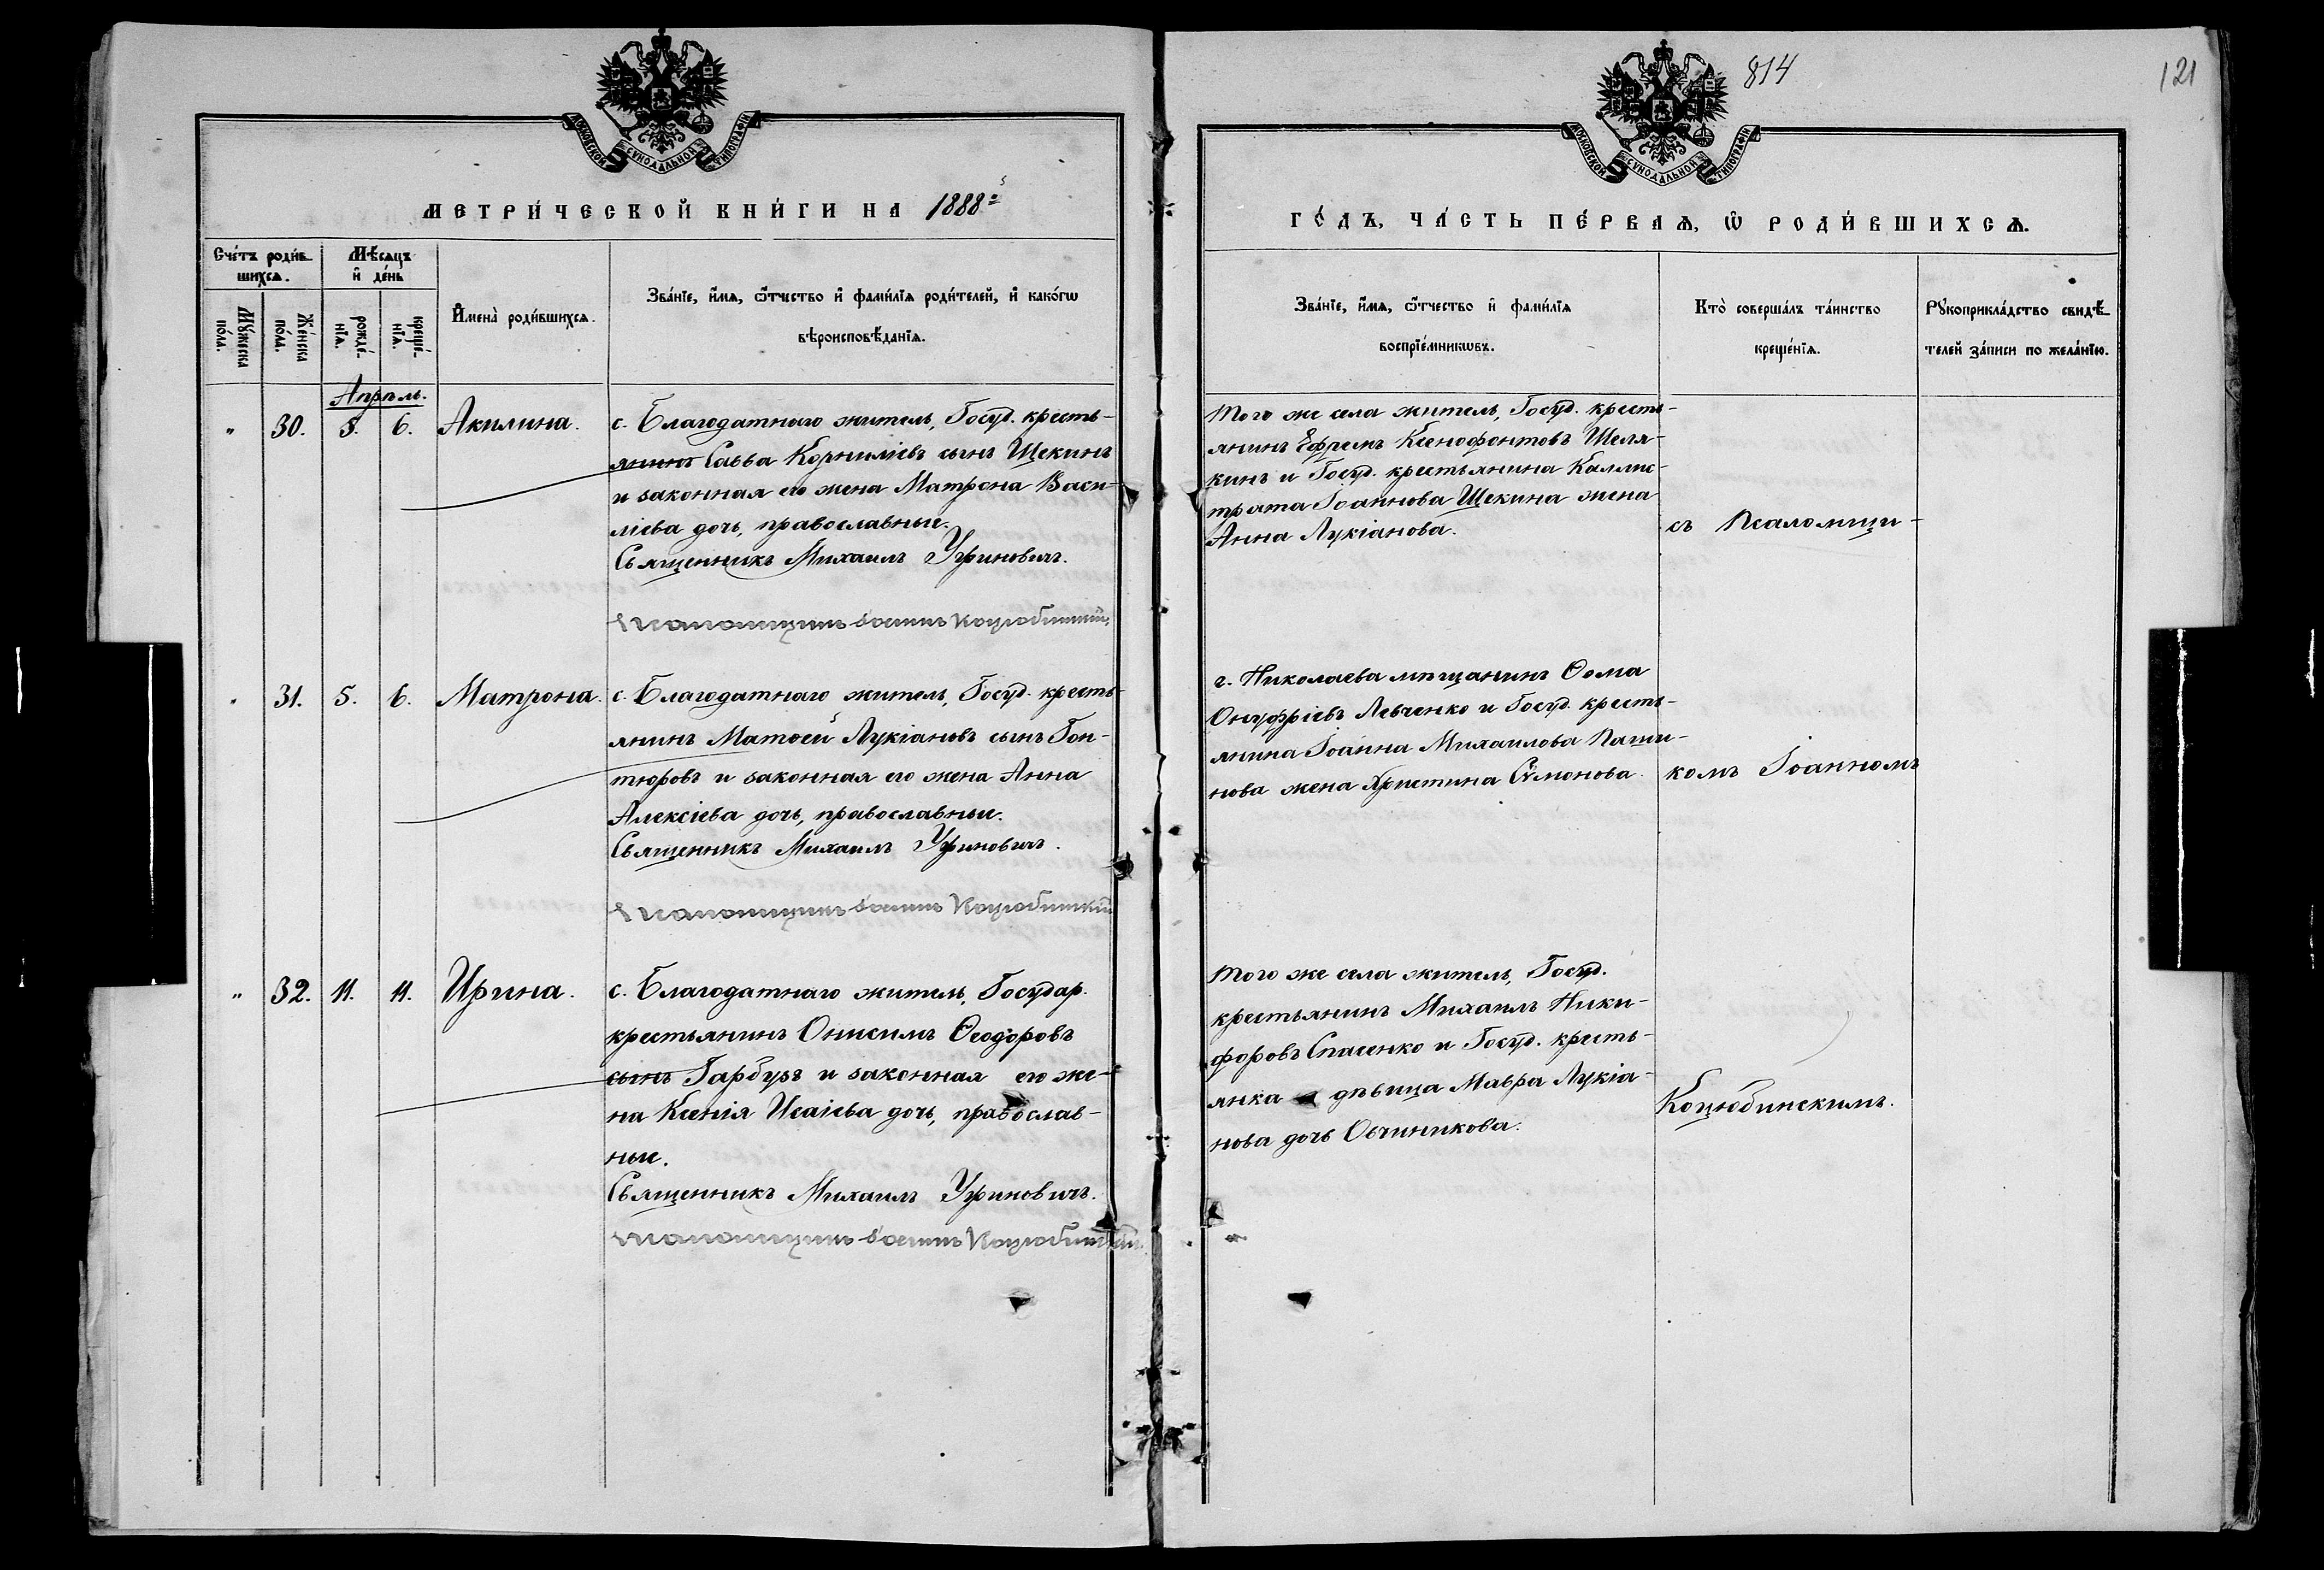 814
121
МОСКОВСКОЙ СѴНОДАЛЬНОЙ ТИПОГРАФІИ
МОСКОВСКОЙ СѴНОДАЛЬНОЙ ТИПОГРАФІИ
МЕТРИ́ЧЕСКОЙ КНИ́ГИ НА 1888й
ГО́ДЪ, ЧА́СТЬ ПЕ́РВАѦ, Ѡ РОДИ́ВШИХСѦ.
Сче́тъ роди́в-
шихсѧ.
Мꙋ́жеска
по́ла.
Же́нска
по́ла.
Мѣ́сѧцъ
и де́нь
рожде́-
нїѧ.
креще́-
нїѧ.
Имена̀ роди́вшихсѧ.
Зва́нїе, и́мѧ, ѻ́тчество и фами́лїѧ роди́телей, и како́гѡ
вѣроисповѣ́данїѧ.
Зва́нїе, и́мѧ, ѻ́тчество и фами́лїѧ
воспрїе́мникѡвъ.
Кто̀ соверша́лъ та́инство
креще́нїѧ.
Рꙋкоприкла́дство свидѣ́-
телей за́писи по жела́нїю.
Апрѣль.
" 30. 5. 6. Акилина.
с. Благодатнаго житель, Госуд. кресть-
янинъ Савва Корниліевъ сынъ Щекинъ
и законная его жена Матрона Васи-
ліева дочь, православные.
Священникъ Михаилъ Угриновичъ.
Псаломщикъ Іоаннъ Коцюбинскій.
Того же села житель, Госуд. кресть-
янинъ Ефремъ Ксенофонтовъ Шеля-
кинъ и Госуд. крестьянина Каллис-
трата Іоаннова Щекина жена
Анна Лукіанова.
съ Псаломщи-
" 31. 5. 6. Матрона.
с. Благодатнаго житель, Госуд. кресть-
янинъ Матѳей Лукіановъ сынъ Гон-
тюровъ и законная его жена Анна
Алексіева дочь, православные.
Священникъ Михаилъ Угриновичъ.
Псаломщикъ Іоаннъ Коцюбинскій
г. Николаева мѣщанинъ Ѳома
Онуфріевъ Левченко и Госуд. кресть-
янина Іоанна Михаилова Паши-
нова жена Христина Симонова.
комъ Іоанномъ
" 32. 11. 11. Ирина.
с. Благодатнаго житель, Государ.
крестьянинъ Онисимъ Ѳеодоровъ
сынъ Гарбузъ и законная его же-
на Ксенія Исаіева дочь, православ-
ные.
Священникъ Михаилъ Угриновичъ.
Псаломщикъ Іоаннъ Коцюбинскій.
Того же села житель, Госуд.
крестьянинъ Михаилъ Ники-
форовъ Спасенко и Госуд. кресть-
янка дѣвица Мавра Лукіа-
нова дочь Овчиникова.
Коцюбинскимъ.